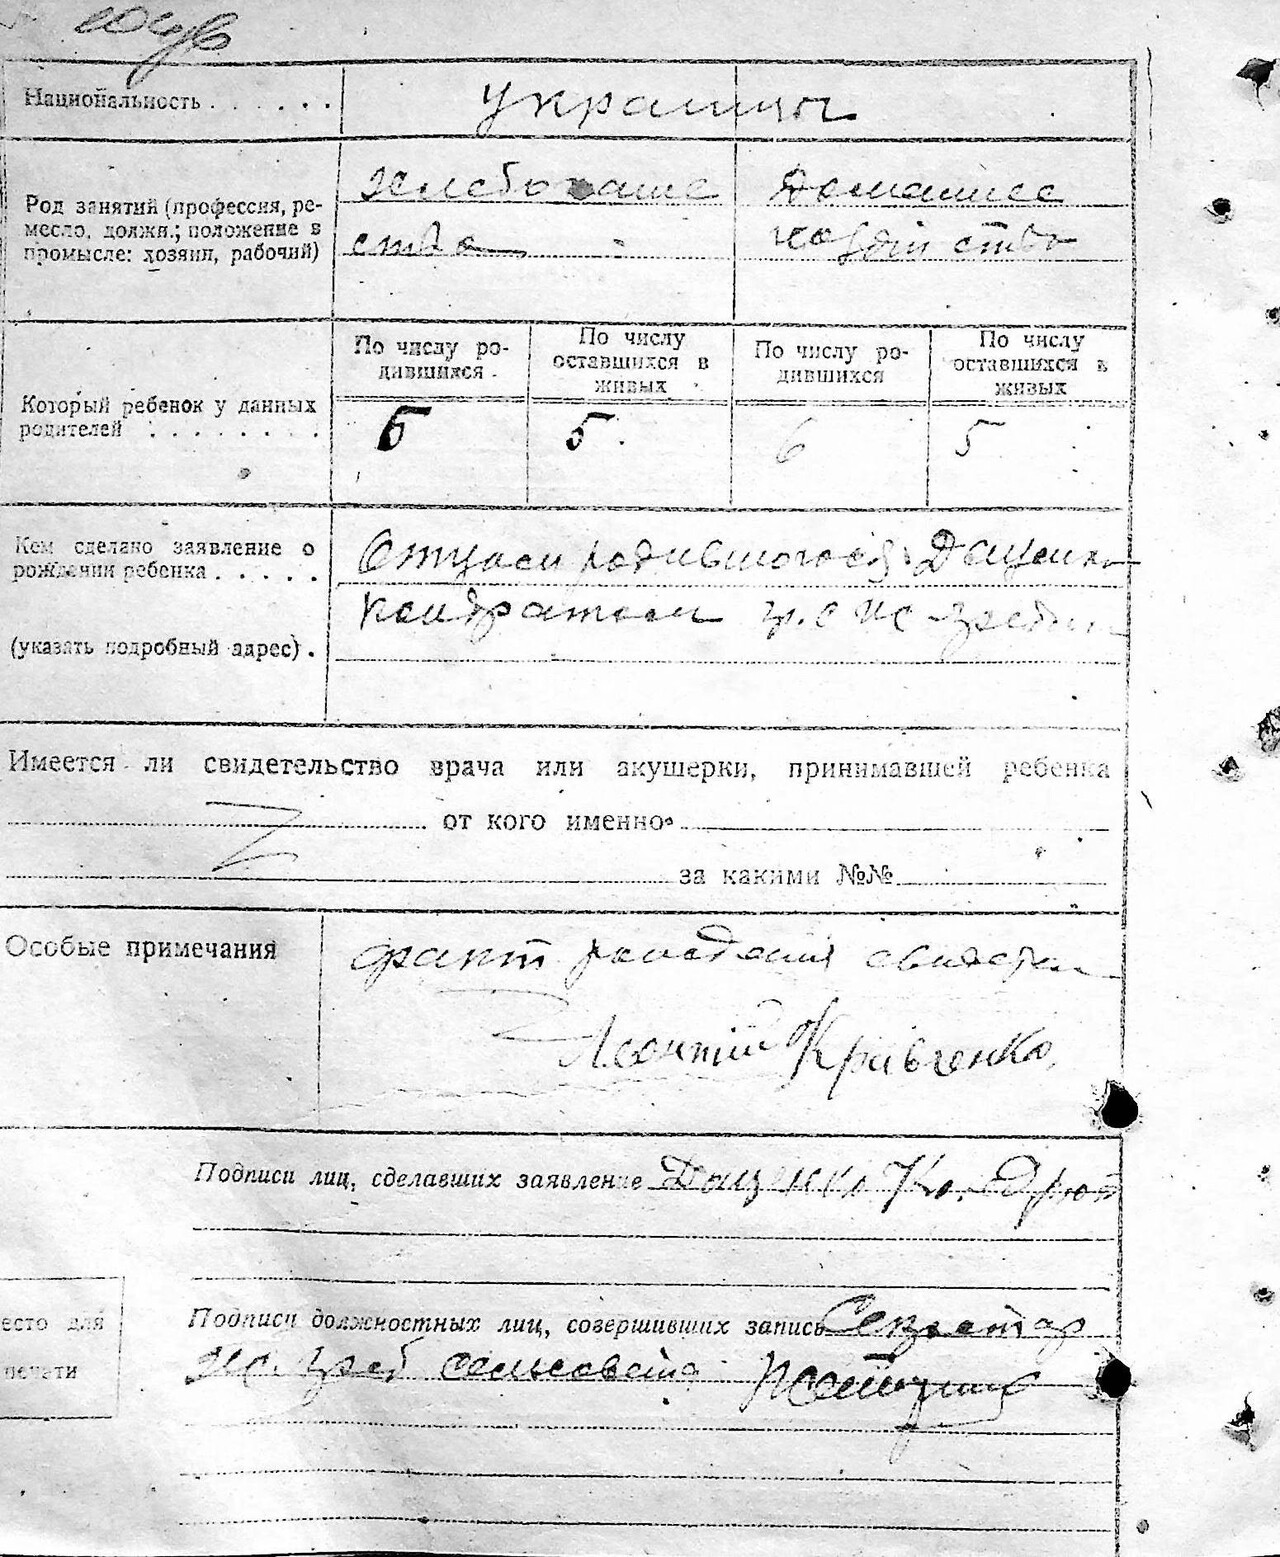 Национальность . . . . . . украинцы
Род занятий (профессия, ре-
месло, должн.; положение в
промысле: хозяин, рабочий)
хлебопаше
ство
Домашнее
хозяйство
Который ребенок у данных
родителей . . . . . . . .
По числу ро-
дившихся
По числу
оставшихся в
живых
По числу ро-
дившихся
По числу
оставшихся в
живых
6 5 6 5
Кем сделано заявление о
рождении ребенка . . . . .
(указать подробный адрес) .
Отцом родившогося Доценко
Кондратом гр. с
Имеется ли свидетельство врача или акушерки, принимавшей ребенка
от кого именно
за какими №№
Особые примечания
факт рождения
Леонтий Кравченко
Подписи лиц, сделавших заявление Доценко Кондрат
Подписи должностных лиц, совершивших запись Секретар
сельсовета
есто для
печати